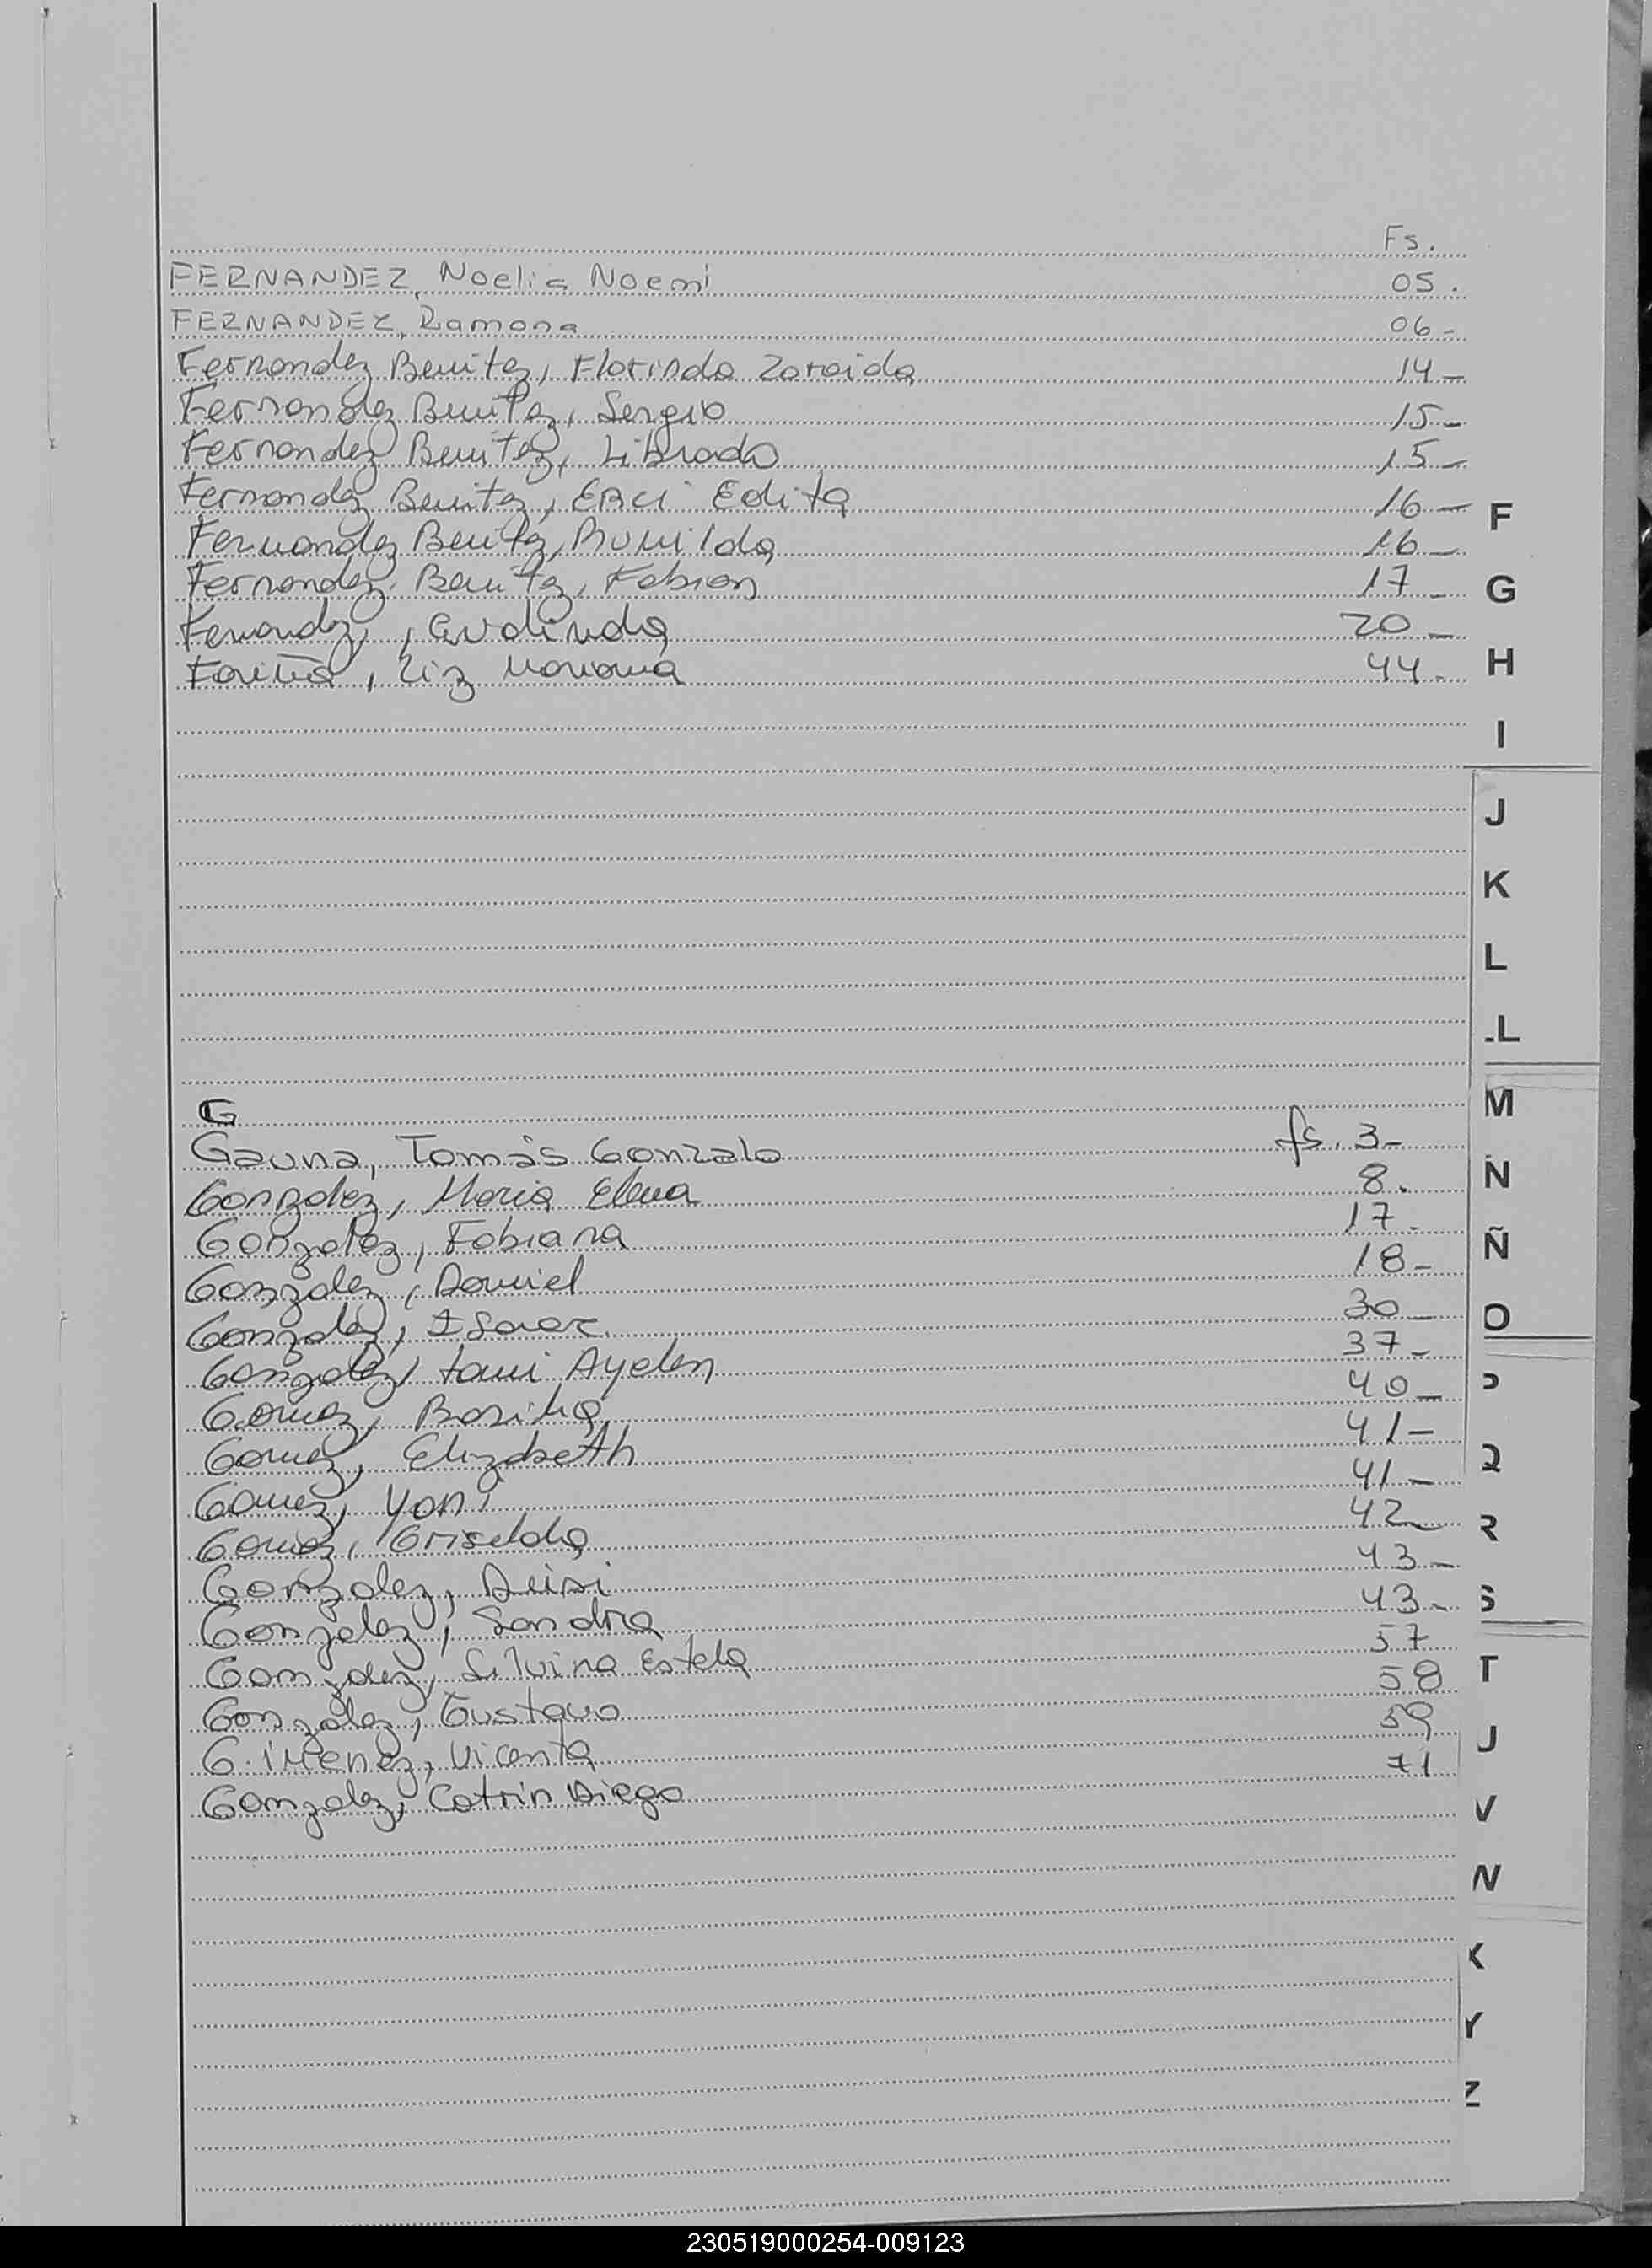 Fs.
FERNANDEZ, Noelia Noemi 05.
FERNANDEZ, Ramona 06-
Fernandez Benitez, Florinda Zaraida 14-
Fernandez Benitez, Sergio 15-
Fernandez Benitez, Librada 15-
Fernandez Benitez, Edita 16-
Fernandez Benitez, 16-
Fernandez Benitez, Fabian 17-
Fernandez, 20-
Fariña, Liz Mariana 44-
G
Gauna, Tomás Gonzalo fs. 3-
Gonzalez, Maria Elena 8.
Gonzalez, Fabiana 17-
Gonzalez, Daniel 18-
Gonzalez, Isaac 30-
Gonzalez, Ayelen 37-
Gomez, 40-
Gomez, Elizabeth 41-
Gomez, Yoni 41-
Gomez, Griselda 42-
Gonzalez, Deisi 43-
Gonzalez, Sandra 43-
Gonzalez, Silvina Estela 57
Gonzalez, Gustavo 58
Gimenez, Vicenta 59
Gonzalez, Catrin Diego 71
F
G
H
I
J
K
L
LL
M
N
Ñ
O
P
Q
R
S
T
U
V
W
X
Y
Z
230519000254-009123